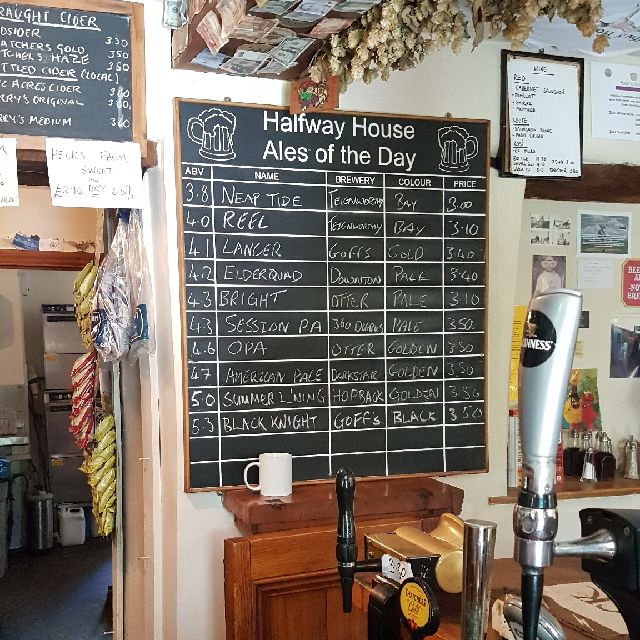 RAUGHT CIDER
DSIDER
ATCHERS GOLD 350
TCHELS HAZE 350
TTLED CIDER (LOCAL)
C ACRES CIDER 360
RRY'S ORIGINAL
RRY'S MEDIUM 360
Halfway House
Ales of the Day
ABV NAME BREWERY COLOUR PRICE
3.8 NEAP TIDE TEIGNWORTHY BAY 3.00
4.0 REEL TEIGNWORTHY BAY 3.10
4.1 LANCER GOFFS GOLD 3.40
4.2 ELDERQUAD DOWNTON PALE 3.40
4.3 BRIGHT OTTER PALE 3.10
4.3 SESSION PA 360 DEGREES PALE 3.50
4.6 OPA OTTER GOLDEN 3.30
4.7 AMERICAN PALE DARKSTAR GOLDEN 3.60
5.0 SUMMER LINING HOPBACK GOLDEN 3.50
5.3 BLACK KNIGHT GOFFS BLACK 3.50
WINE
RED
CABERNET SAUVIGNON
MERLOT
SHIRAZ
WHITE
GUINNESS
THATCHERS
Gold